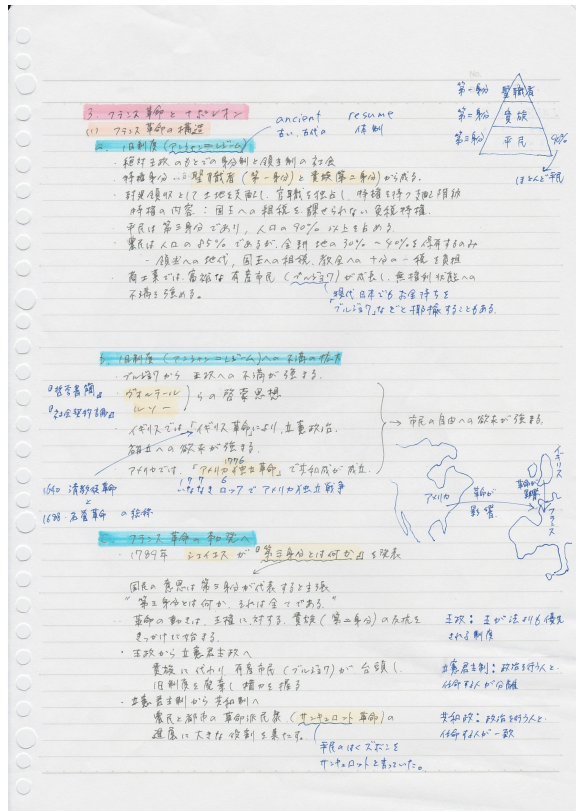 No.
3. フランス革命とナポレオン
(1) フランス革命の構造
a. 旧制度(アンシャン=レジーム)
ancient resume
古い、古代の 体制
第一身分 聖職者
第二身分 貴族
第三身分 平民
90%
ほとんど平民
・絶対王政のもとでの身分制と領主制の社会
・特権身分い 聖職者(第一身分)と貴族(第二身分)から成る。
・封建領収として土地を支配し、官職を独占し、特権を持つ支配
特権の内容:国王への租税を課せられない免税特権。
・平民は第三身分であり、人口の90%以上を占める。
・農民は人口の85%であるが、全耕地の30%~40%を保有するのみ
-領主への地代、国王への租税、教会への十分の一税を負担
・商工業では、富裕な有産市民(ブルジョワ)が成長し、無権利状態への
不満を強める。
現代日本でもお金持ちを
「ブルジョワ」などと揶揄することもある。
b. 旧制度(アンシャン=レジーム)への不満の
・ブルジョワから王政への不満が強まる。
『哲学書簡』
『社会契約論』
・ヴォルテール
ルソー
らの啓蒙思想
・イギリスでは「イギリス革命」により、立憲政治、
確立への欲求が強まる。
1776
・アメリカでは、「アメリカ独立革命」で共和政が成立。
→ 市民の自由への欲求が強まる。
1640 清教徒革命
と
1688 名誉革命 の総称
1776
いななきロックでアメリカ独立戦争
アメリカ
革命が
影響
イギリス
革命が
影響
フランス
c. フランス革命の勃発へ
・1789年 シェイエスが『第三身分とは何か』を発表
国民の意思は第三身分が代表すると主張
"第三身分とは何か、それは全てである."
・革命の動きは、王権に対する、貴族(第二身分)の反抗を
きっかけに始まる。
・王政から立憲君主政へ
貴族に代わり、有産市民(ブルジョワ)が、台頭し、
旧制度を廃棄し権力を握る
・立憲君主制から共和制へ
農民と都市の革命派民衆(サンキュロット革命)の
進展に大きな役割を果たす。
平民のはくズボンを
サンキュロットと言っていた。
王政:王が法よりも優先
される制度
立憲君主制:政治を行う人と、
任命する人が分離
共和政:政治を行う人と、
任命する人が一致